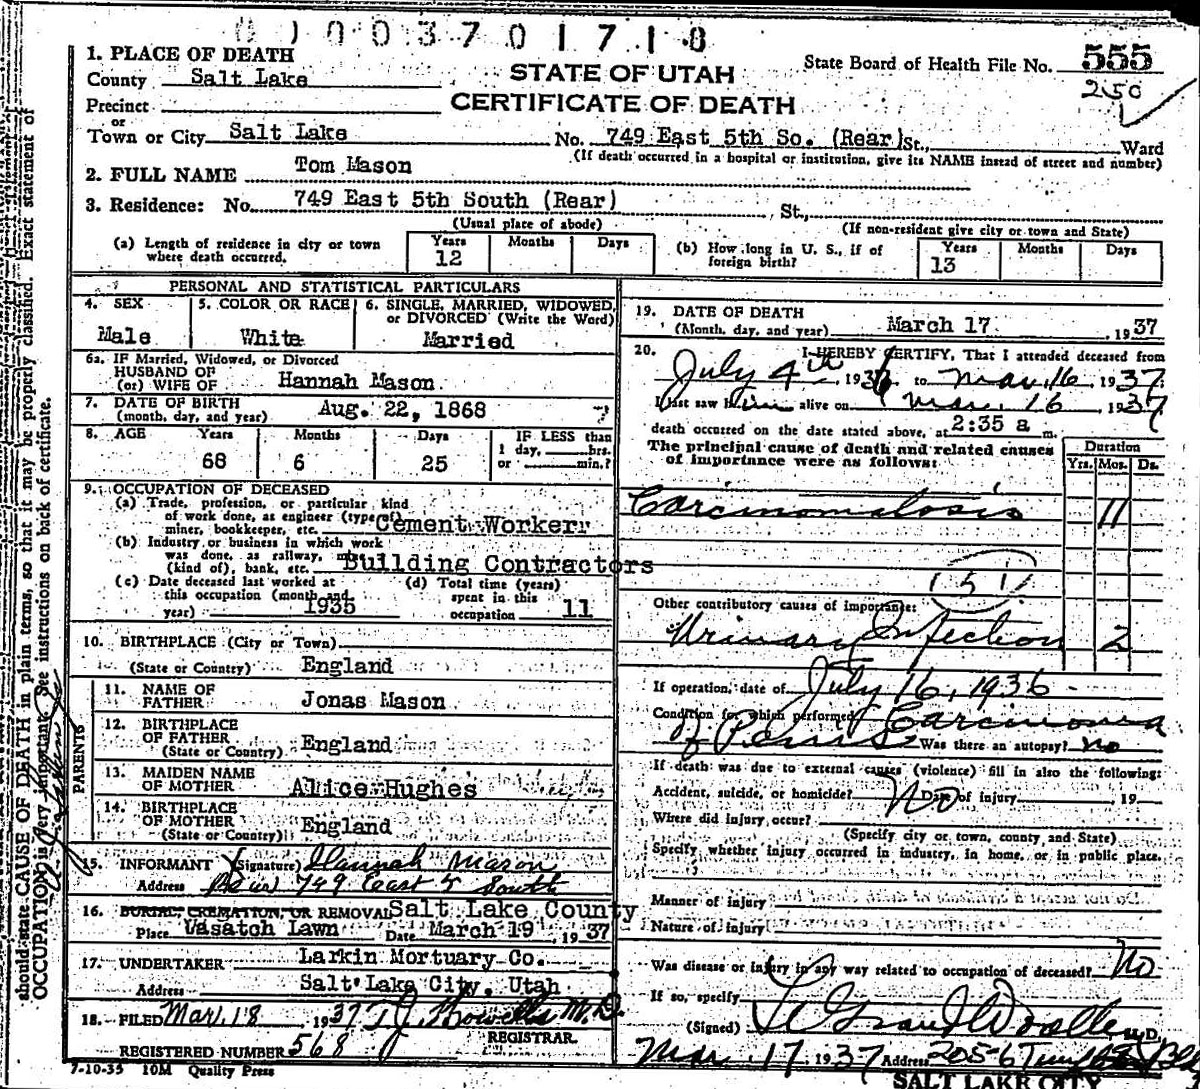 0 1 0 0 3 7 0 1 7 1 8
1. PLACE OF DEATH
County Salt Lake
Precinct
or
Town or City Salt Lake
STATE OF UTAH
CERTIFICATE OF DEATH
State Board of Health File No. 555
250
No. 749 East 5th So. (Rear) St., Ward
(If death occurred in a hospital or institution, give its NAME instead of street and number)
2. FULL NAME Tom Mason
3. Residence: No. 749 East 5th South (Rear) St.,
(Usual place of abode) (If non-resident give city or town and State)
(a) Length of residence in city or town where death occurred. Years 12 Months Days
(b) How long in U. S., if of foreign birth? Years 13 Months Days
PERSONAL AND STATISTICAL PARTICULARS
4. SEX Male
5. COLOR OR RACE White
6. SINGLE, MARRIED, WIDOWED, or DIVORCED (Write the Word) Married
6a. IF Married, Widowed, or Divorced
HUSBAND OF
(or) WIFE OF Hannah Mason
7. DATE OF BIRTH
(month, day, and year) Aug. 22, 1868
8. AGE Years 68 Months 6 Days 25
IF LESS than
1 day, hrs.
or min.?
9. OCCUPATION OF DECEASED
(a) Trade, profession, or particular kind
of work done, as engineer (type of)
miner, bookkeeper, etc. Cement Worker
(b) Industry or business in which work
was done, as railway, mine
(kind of), bank, etc. Building Contractors
(c) Date deceased last worked at
this occupation (month and
year) 1935
(d) Total time (years)
spent in this
occupation 11
10. BIRTHPLACE (City or Town)
(State or Country) England
PARENTS
11. NAME OF FATHER Jonas Mason
12. BIRTHPLACE OF FATHER
(State or Country) England
13. MAIDEN NAME OF MOTHER Alice Hughes
14. BIRTHPLACE OF MOTHER
(State or Country) England
15. INFORMANT (Signature) Hannah Mason
Address Rear 749 East 5 South
16. BURIAL, CREMATION, OR REMOVAL Salt Lake County
Place Wasatch Lawn Date March 19, 1937
17. UNDERTAKER Larkin Mortuary Co.
Address Salt Lake City, Utah
18. FILED Mar. 18 1937 T J Howells M.D.
REGISTRAR
REGISTERED NUMBER 568
7-10-35 10M Quality Press
19. DATE OF DEATH
(Month, day, and year) March 17, 1937
20. I HEREBY CERTIFY, That I attended deceased from
July 4th, 1936 to Mar. 16, 1937
I last saw him alive on Mar. 16 1937
death occurred on the date stated above, at 2:35 a m.
The principal cause of death and related causes
of importance were as follows:
Duration
Yrs. Mos. Ds.
Carcinomatosis 11
(51)
Other contributory causes of importance:
Urinary Infection 2
If operation, date of July 16, 1936
Condition for which performed Carcinoma
of Penis Was there an autopsy? no
If death was due to external causes (violence) fill in also the following:
Accident, suicide, or homicide? No Date of injury , 19
Where did injury occur?
(Specify city or town, county and State)
Specify whether injury occurred in industry, in home, or in public place.
Manner of injury
Nature of injury
Was disease or injury in any way related to occupation of deceased? No
If so, specify
(Signed) LeGrand Woolley M.D.
Mar. 17 1937 Address 205-6
SALT LAKE CITY
should state CAUSE OF DEATH in plain terms, so that it may be properly classified. Exact statement of
OCCUPATION is very important. See instructions on back of certificate.